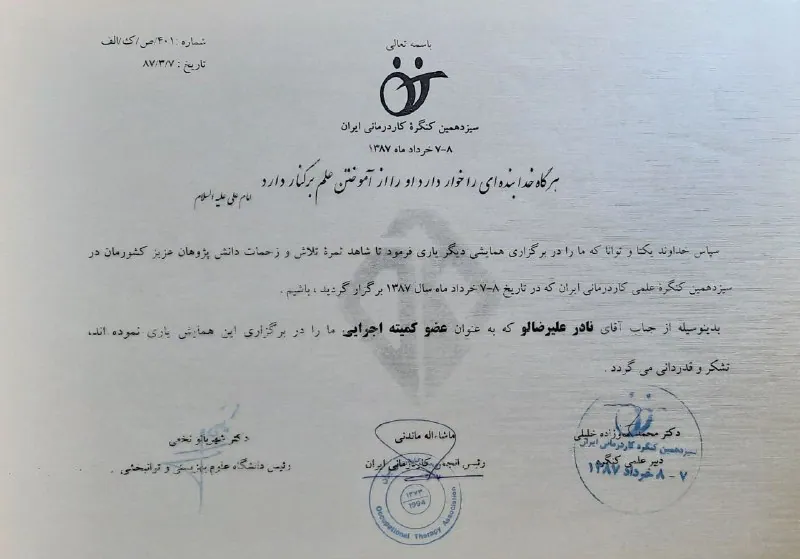 باسمه تعالی
شماره : ۴۰۱/ص/ک/الف
تاریخ : ۸۷/۳/۷
سیزدهمین کنگرهٔ کاردرمانی ایران
۸-۷ خرداد ماه ۱۳۸۷
هرگاه خدا بنده ای را خوار دارد او را از آموختن علم برکنار دارد
امام علی علیه السلام
سپاس خداوند یکتا و توانا که ما را در برگزاری همایشی دیگر یاری فرمود تا شاهد ثمرهٔ تلاش و زحمات دانش پژوهان عزیز کشورمان در
سیزدهمین کنگرهٔ علمی کاردرمانی ایران که در تاریخ ۸-۷ خرداد ماه سال ۱۳۸۷ برگزار گردید ، باشیم .
بدینوسیله از جناب آقای نادر علیرضالو که به عنوان عضو کمیته اجرایی ما را در برگزاری این همایش یاری نموده اند،
تشکر و قدردانی می گردد .
دکتر محمد زاده خلیلی
دبیر علمی کنگره
سیزدهمین کنگره کاردرمانی ایران
۷ - ۸ خرداد ۱۳۸۷
ماشاءاله ماندنی
رئیس انجمن کاردرمانی ایران
۱۳۷۳
1994
Occupational Therapy Association
دکتر شهربانو نخعی
رئیس دانشگاه علوم بهزیستی و توانبخشی